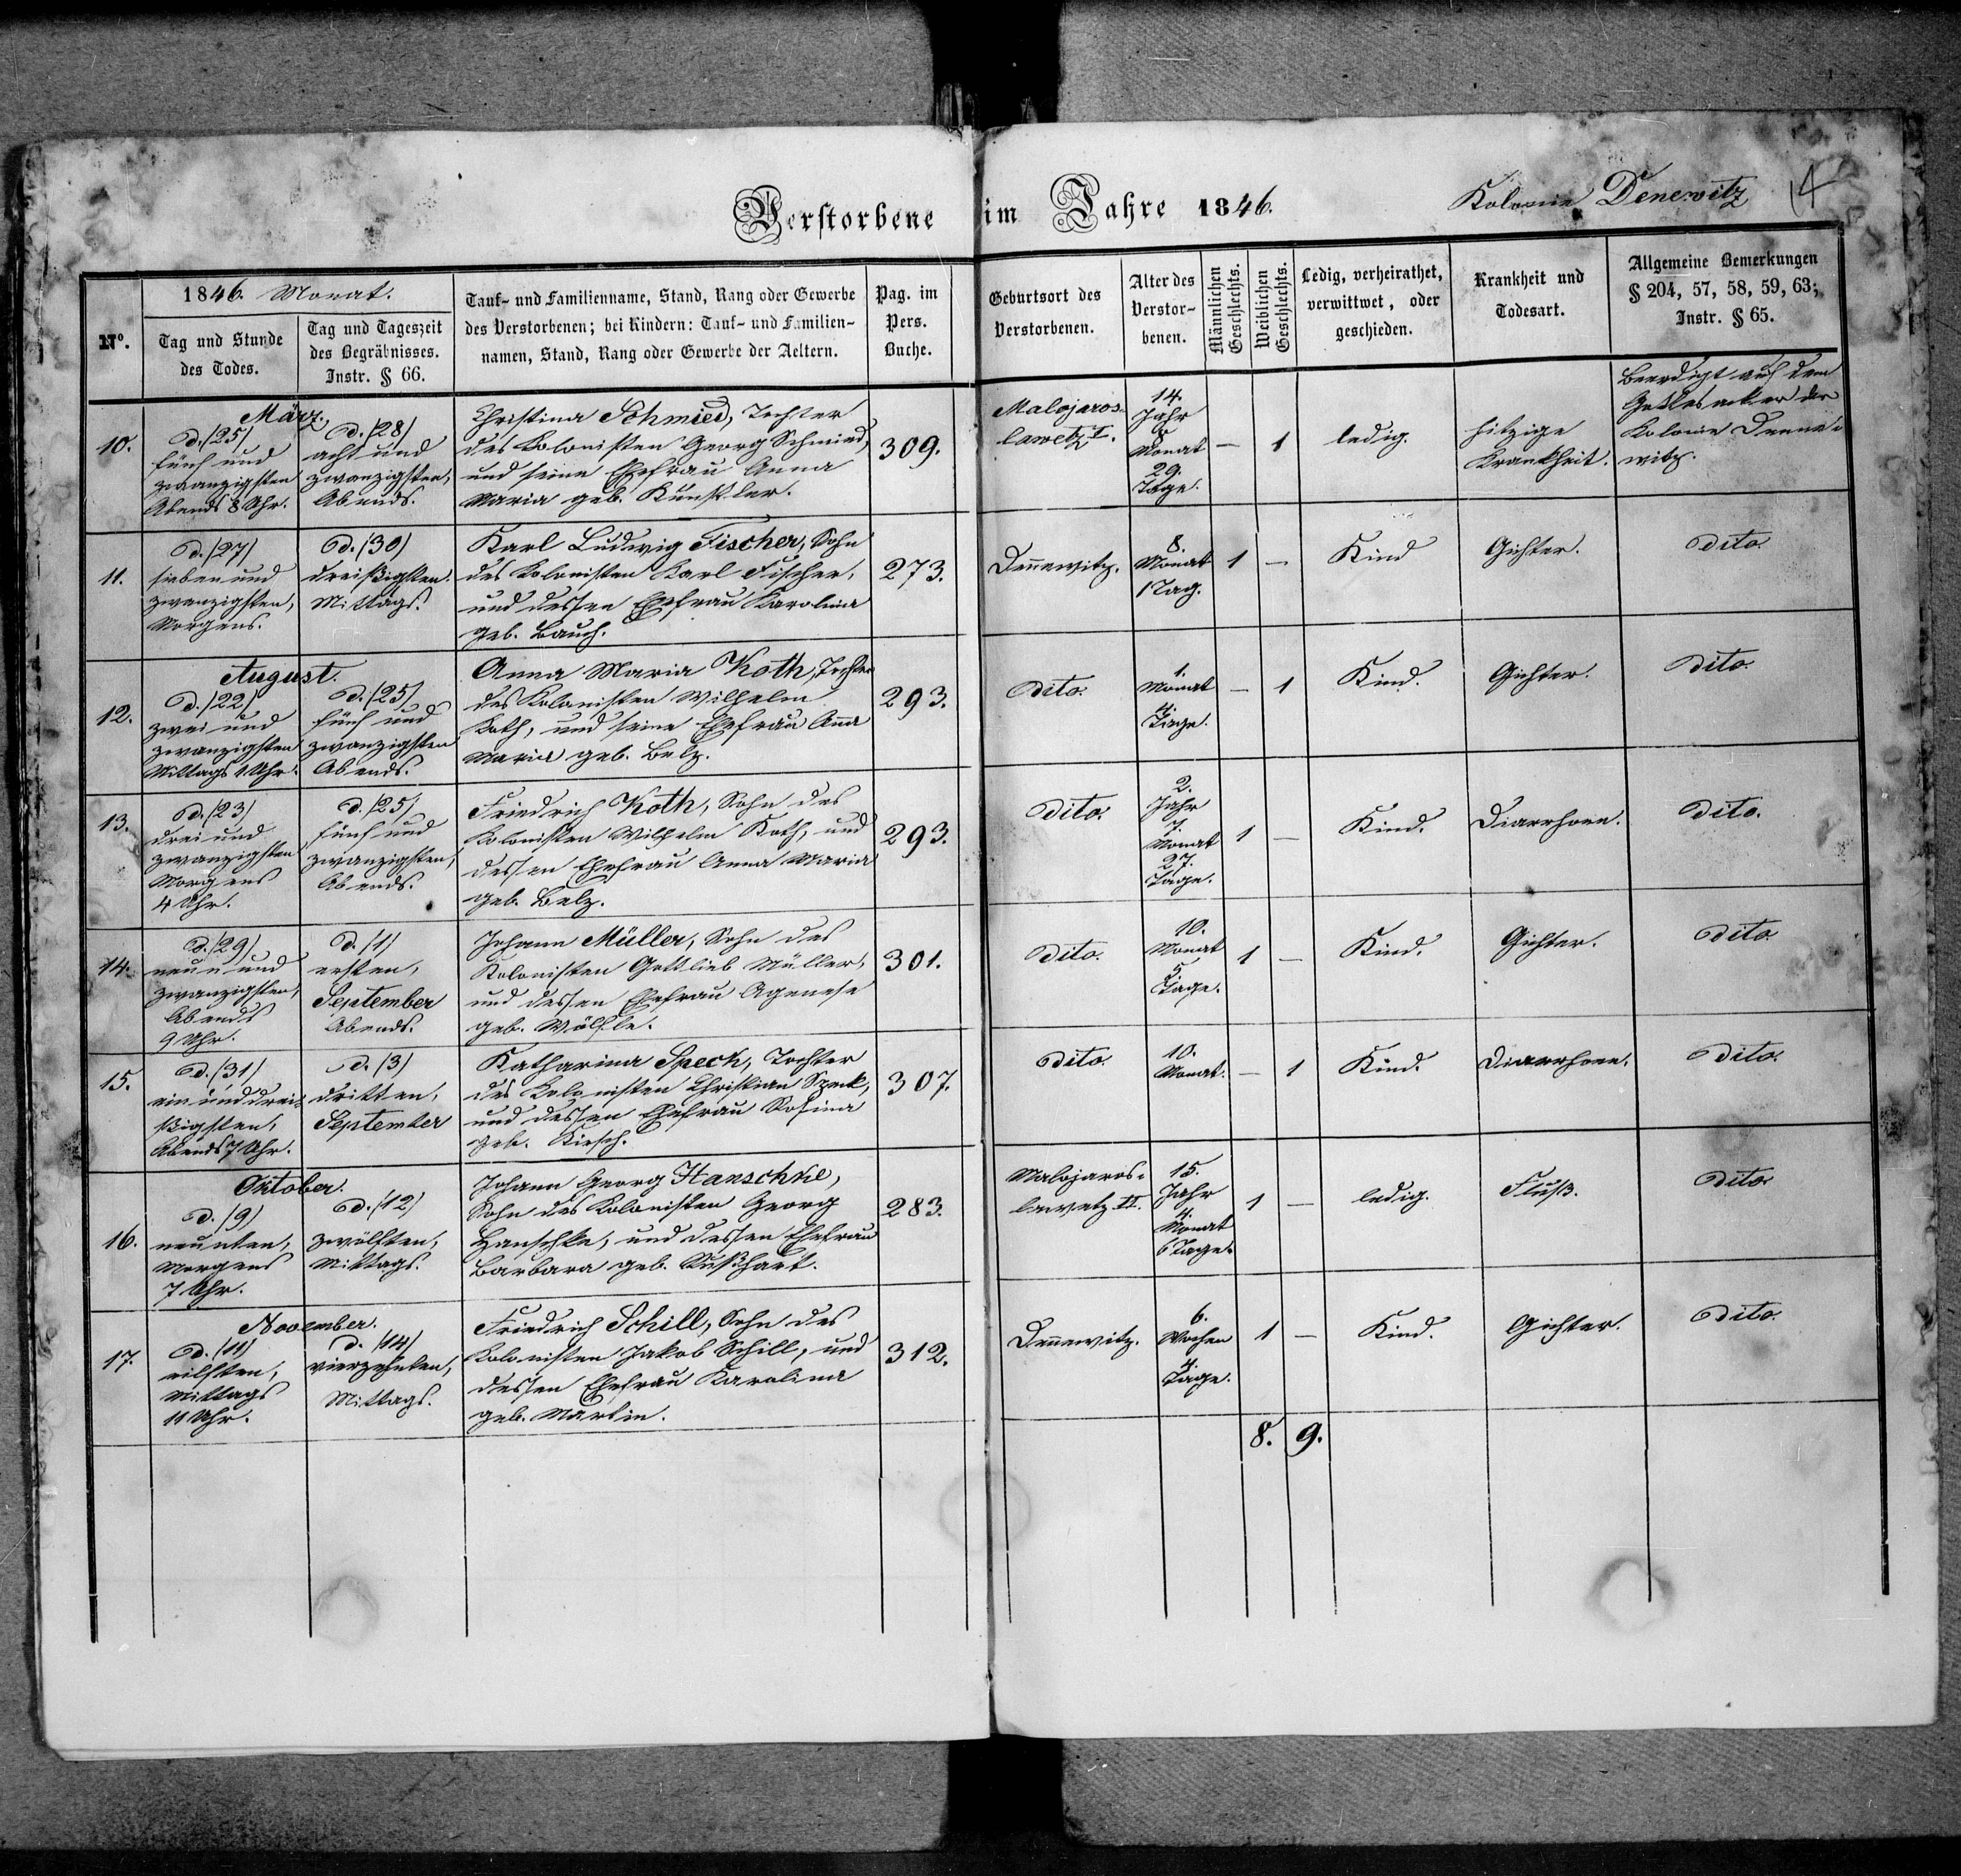 Verstorbene im Jahre 1846.
Kolonie Denewitz
14
No.
1846. Monat.
Tag und Stunde
des Todes.
Tag und Tageszeit
des Begräbnisses.
Instr. § 66.
Tauf- und Familienname, Stand, Rang oder Gewerbe
des Verstorbenen; bei Kindern: Tauf- und Familien-
namen, Stand, Rang oder Gewerbe der Aeltern.
Pag. im
Pers.
Buche.
Geburtsort des
Verstorbenen.
Alter des
Verstor-
benen.
Männlichen
Geschlechts.
Weiblichen
Geschlechts.
Ledig, verheirathet,
verwittwet, oder
geschieden.
Krankheit und
Todesart.
Allgemeine Bemerkungen
§ 204, 57, 58, 59, 63;
Instr. § 65.
März.
10.
d. /25/
fünf und
zwanzigsten
Abends 8 Uhr.
d. /28/
acht und
zwanzigsten,
Abends.
Christina Schmied, Tochter
des Kolonisten Georg Schmied,
und seine Ehefrau Anna
Maria geb. Künstler.
309.
Malojaros-
lawetz I.
14.
Jahr
8
Monat
29.
Tage.
—
1
ledig.
hitzige
Krankheit.
Beerdigt auf dem
Gottesacker der
Kolonie Denne-
witz.
11.
d. /27/
sieben und
zwanzigsten,
Morgens.
d. /30/
dreißigsten.
Mittags.
Karl Ludwig Fischer, Sohn
des Kolonisten Karl Fischer,
und dessen Ehefrau Karolina
geb. Bauch.
273.
Dennewitz.
8.
Monat
1 Tag.
1
—
Kind
Gichter.
Dito.
August.
12.
d. /22/
zwei und
zwanzigsten
Mittags 1 Uhr.
d. /25/
fünf und
zwanzigsten
Abends.
Anna Maria Koth, Tochter
des Kolonisten Wilhelm
Koth, und seine Ehefrau Anna
Maria geb. Belz.
293.
Dito.
1.
Monat
4.
Tage.
—
1
Kind.
Gichter.
Dito.
13.
d. /23/
drei und
zwanzigsten
Morgens
4 Uhr.
d. /25/
fünf und
zwanzigsten,
Abends.
Friedrich Koth, Sohn des
Kolonisten Wilhelm Koth, und
dessen Ehefrau Anna Maria
geb. Belz.
293.
Dito.
2.
Jahr
7.
Monat
27.
Tage.
1
—
Kind.
Diarrhoee.
Dito.
14.
d. /29/
neun und
zwanzigsten,
Abends
9 Uhr.
d. /1/
ersten,
September
Abends.
Johann Müller, Sohn des
Kolonisten Gottlieb Müller,
und dessen Ehefrau Agenese
geb. Wölfle.
301.
Dito.
10.
Monat
5.
Tage.
1
—
Kind.
Gichter.
Dito.
15.
d. /31/
ein und drei-
ßigsten,
Abends 7 Uhr.
d. /3/
dritten,
September
Katharina Speck, Tochter
des Kolonisten Christian Speck,
und dessen Ehefrau Rosina
geb. Kirsch.
307.
Dito.
10.
Monat.
—
1
Kind.
Diarrhoee.
Dito.
Oktober.
16.
d. /9/
neunten,
Morgens
7 Uhr.
d. /12/
zwölften,
Mittags.
Johann Georg Hanschke,
Sohn des Kolonisten Georg
Hanschke, und dessen Ehefrau
Barbara geb. Rußhart.
283.
Malojaros-
lawetz II.
15.
Jahr
4.
Monat
6 Tage.
1
—
ledig.
Fluß.
Dito.
November.
17.
d. /11/
eilften,
Mittags
11 Uhr.
d. /14/
vierzehnten,
Mittags.
Friedrich Schill, Sohn des
Kolonisten Jakob Schill, und
dessen Ehefrau Karolina
geb. Martin.
312.
Dennewitz.
6.
Wochen
4.
Tage.
1
—
Kind.
Gichter.
Dito.
8. 9.